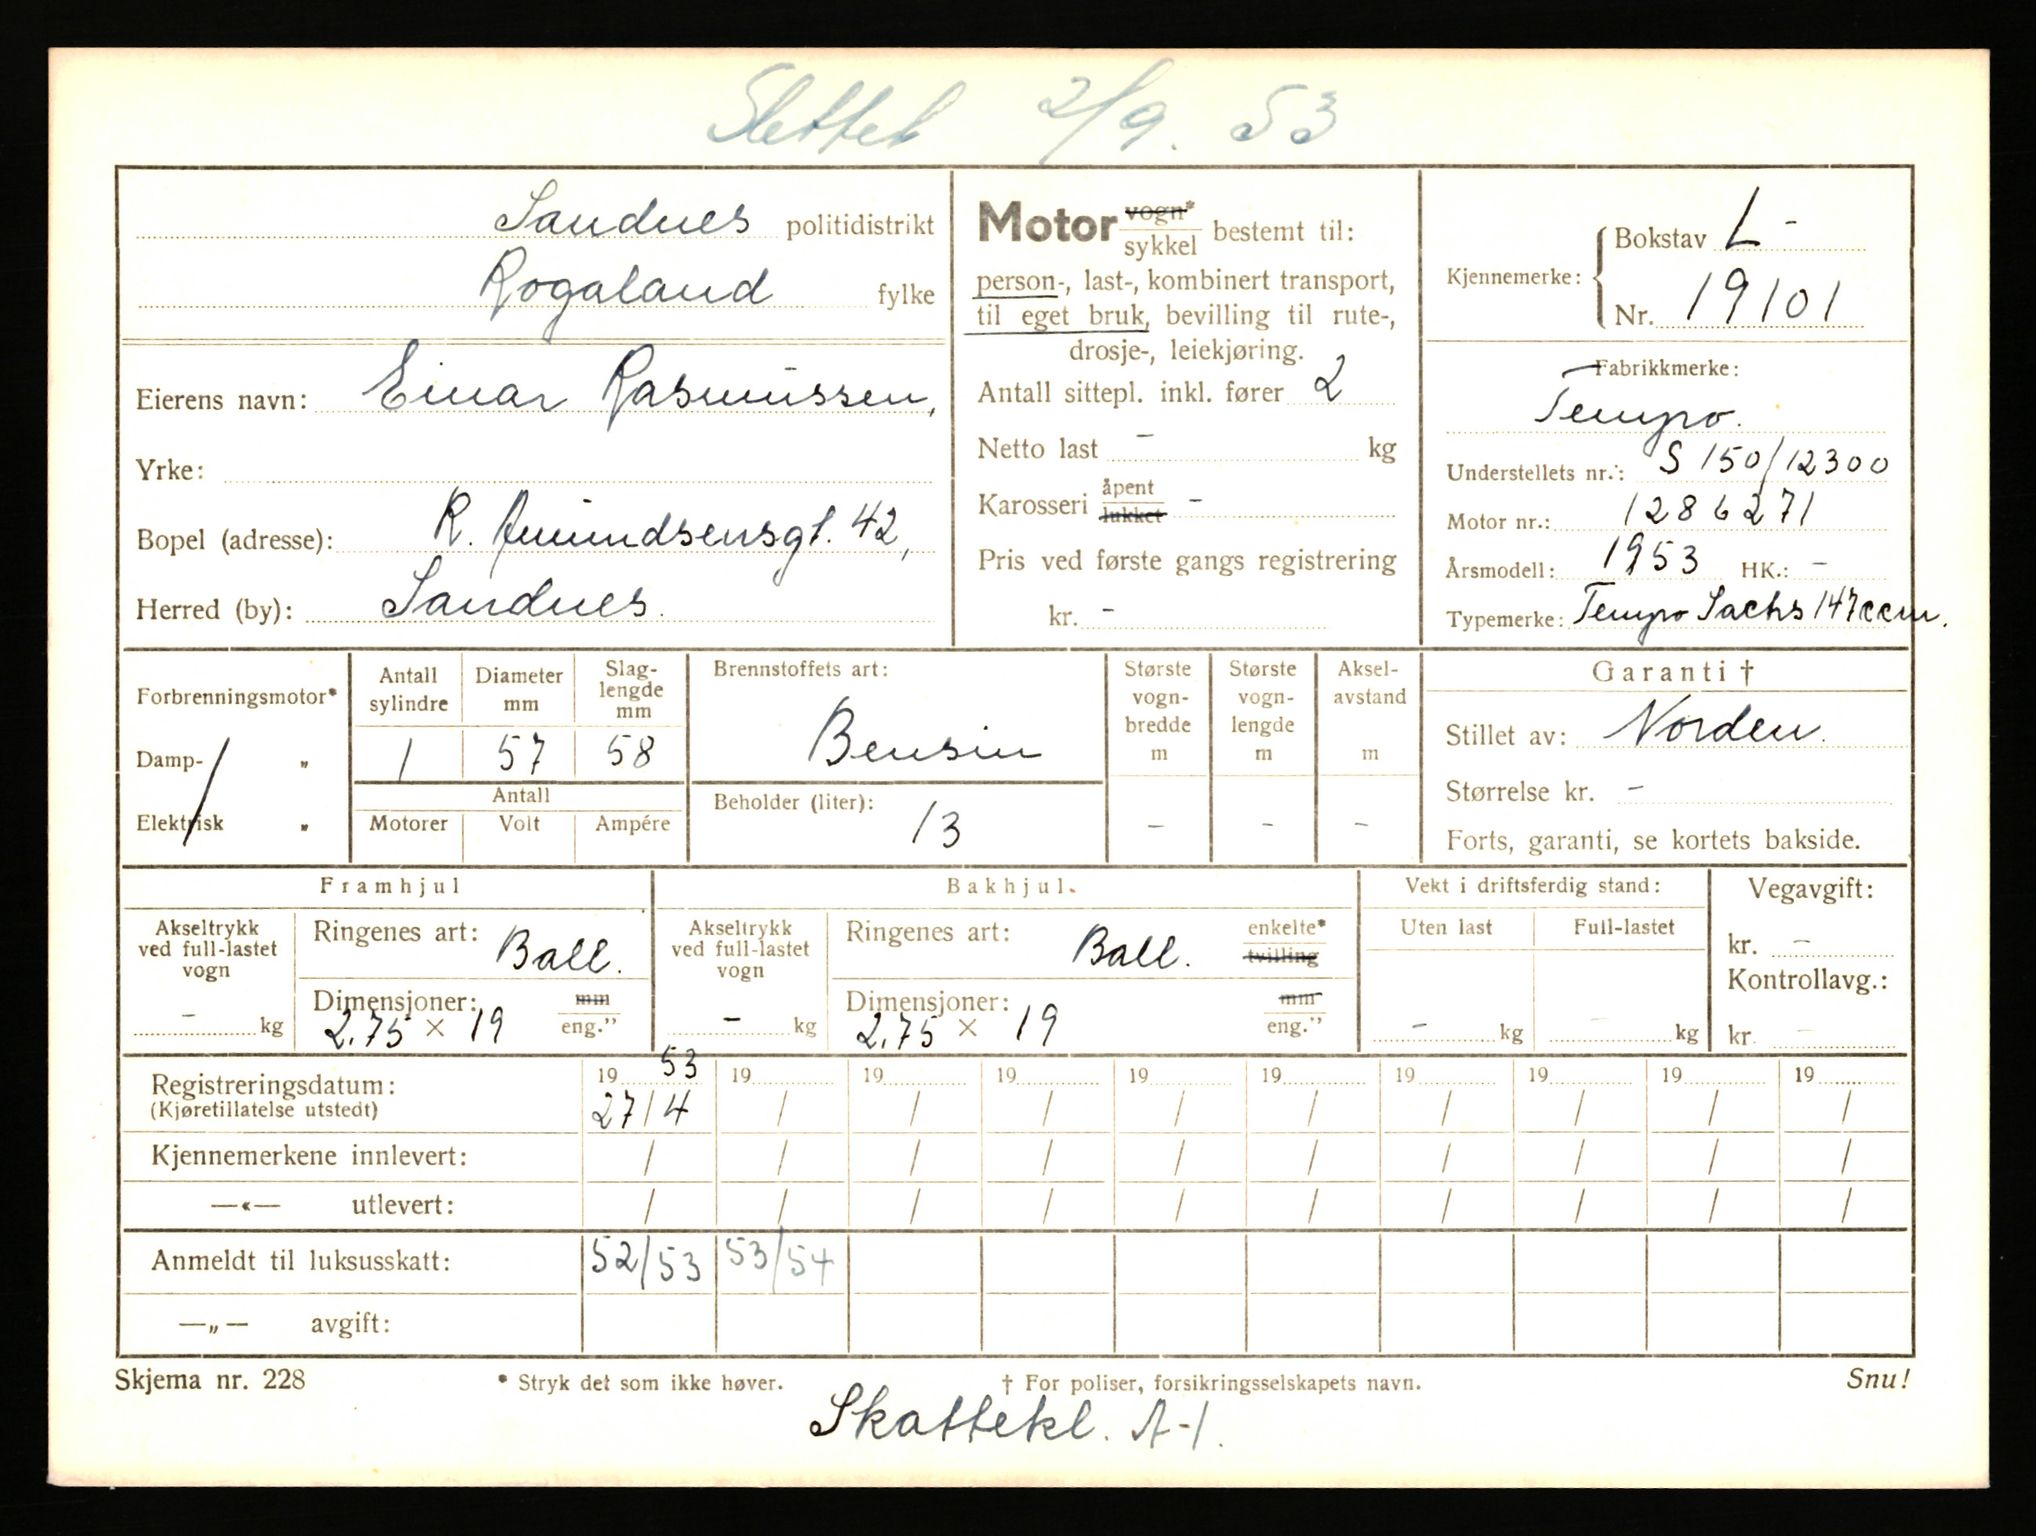 Slettet 2/9. 53
Sandnes politidistrikt
Rogaland fylke
Eierens navn: Einar Rasmussen,
Yrke:
Bopel (adresse): R. Amundsensgt. 42,
Herred (by): Sandnes.
Motor vogn* sykkel bestemt til:
person-, last-, kombinert transport,
til eget bruk, bevilling til rute-,
drosje-, leiekjøring.
Antall sittepl. inkl. fører 2
Netto last - kg
Karosseri åpent lukket -
Pris ved første gangs registrering
kr. -
Kjennemerke: Bokstav L-
Nr. 19101
Fabrikkmerke:
Tempo.
Understellets nr.: S 150/12300
Motor nr.: 1286271
Årsmodell: 1953 HK.: -
Typemerke: Tempo Sachs 147ccm.
Forbrenningsmotor*
Damp- „
Elektrisk „
Antall sylindre Diameter mm Slag-lengde mm
1 57 58
Antall
Motorer Volt Ampére
Brennstoffets art:
Bensin
Beholder (liter):
13
Største vogn-bredde m Største vogn-lengde m Aksel-avstand m
- - -
Garanti †
Stillet av: Norden.
Størrelse kr. -
Forts, garanti, se kortets bakside.
Framhjul
Akseltrykk ved full-lastet vogn
- kg
Ringenes art: Ball.
Dimensjoner: mm
2.75 × 19 eng.”
Bakhjul.
Akseltrykk ved full-lastet vogn
- kg
Ringenes art: Ball. enkelte* tvilling
Dimensjoner: mm
2.75 × 19 eng.”
Vekt i driftsferdig stand:
Uten last Full-lastet
- kg - kg
Vegavgift:
kr. -
Kontrollavg.:
kr. -
Registreringsdatum: 19 53 19 19 19 19 19 19 19 19 19
(Kjøretillatelse utstedt) 27/4 / / / / / / / / /
Kjennemerkene innlevert: / / / / / / / / / /
—«— utlevert: / / / / / / / / / /
Anmeldt til luksusskatt: 52/53 53/54
—„— avgift:
Skjema nr. 228 * Stryk det som ikke høver. † For poliser, forsikringsselskapets navn. Snu!
Skattekl. A-1.